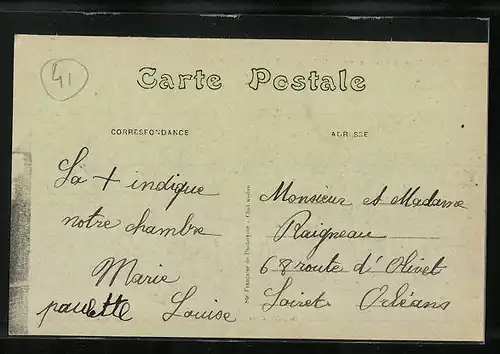 41
Carte Postale
CORRESPONDANCE
ADRESSE
La + indique
notre chambre
Marie
paulette Louise
Monsieur et Madame
Raigneau
68 route d'Olivet
Loiret Orléans